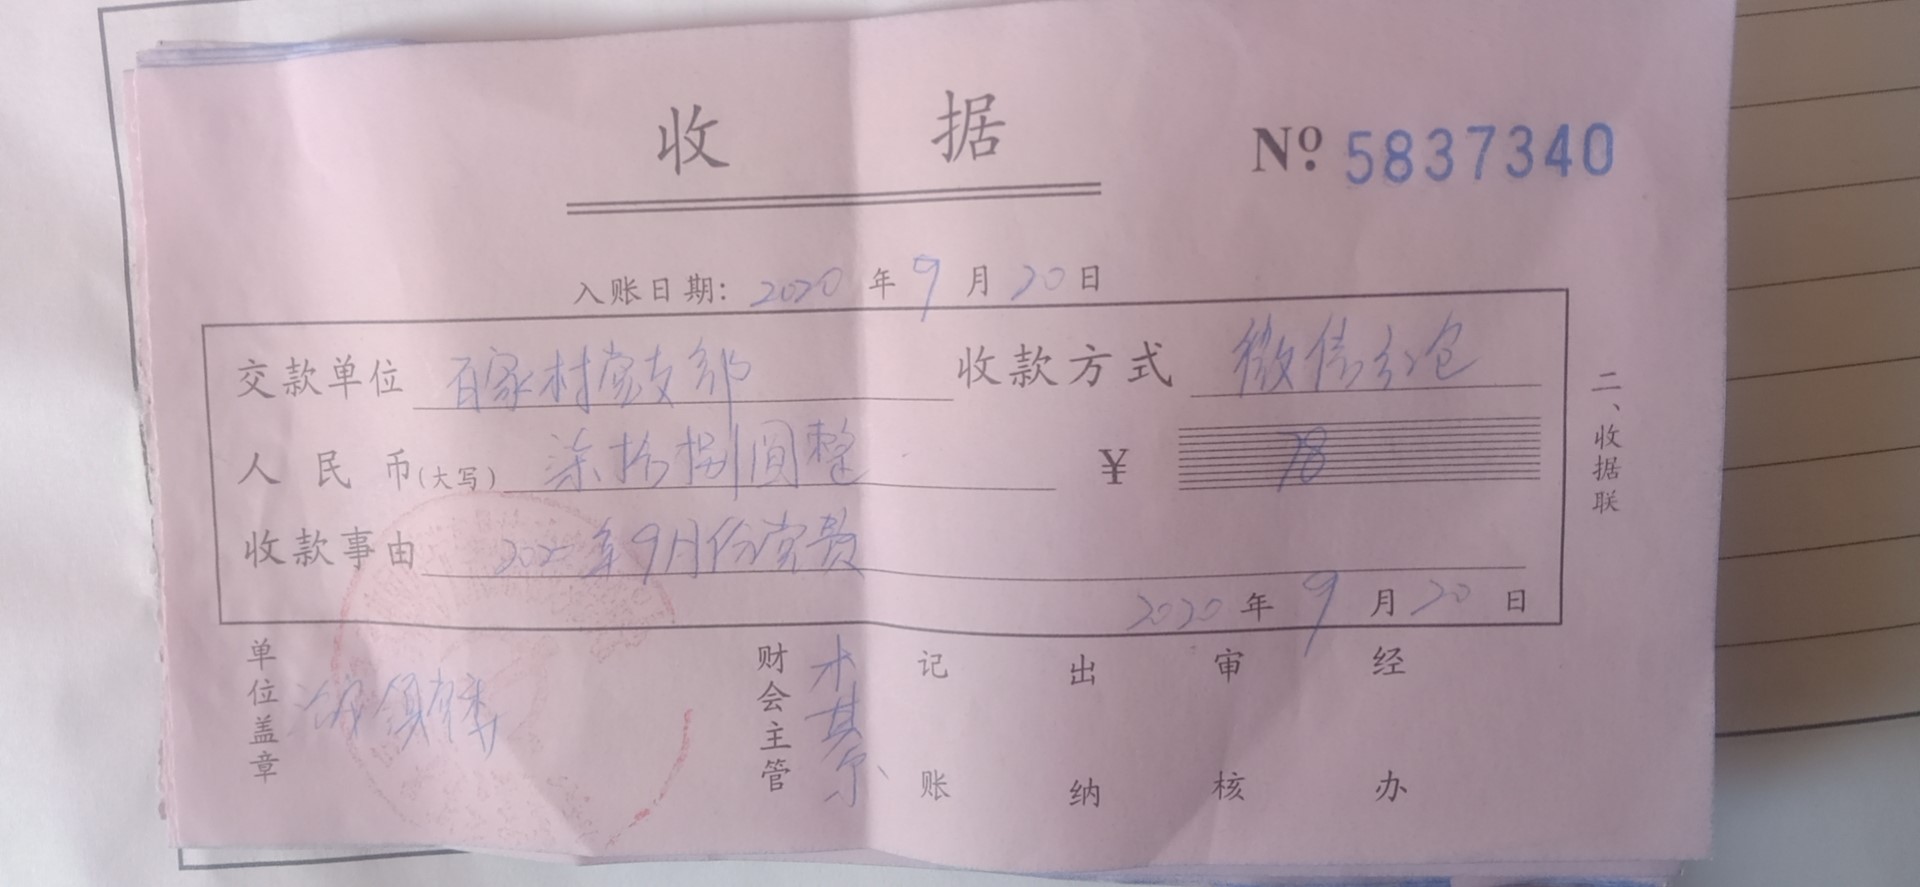 收 据
No. 5837340
入账日期: 2020 年 9 月 20 日
交款单位 百家村党支部 收款方式 微信红包
人民币(大写) 柒拾捌圆整 ¥ 78
收款事由 2020年9月份党费
2020 年 9 月 20 日
单位盖章
财会主管
记账
出纳
审核
经办
二、收据联